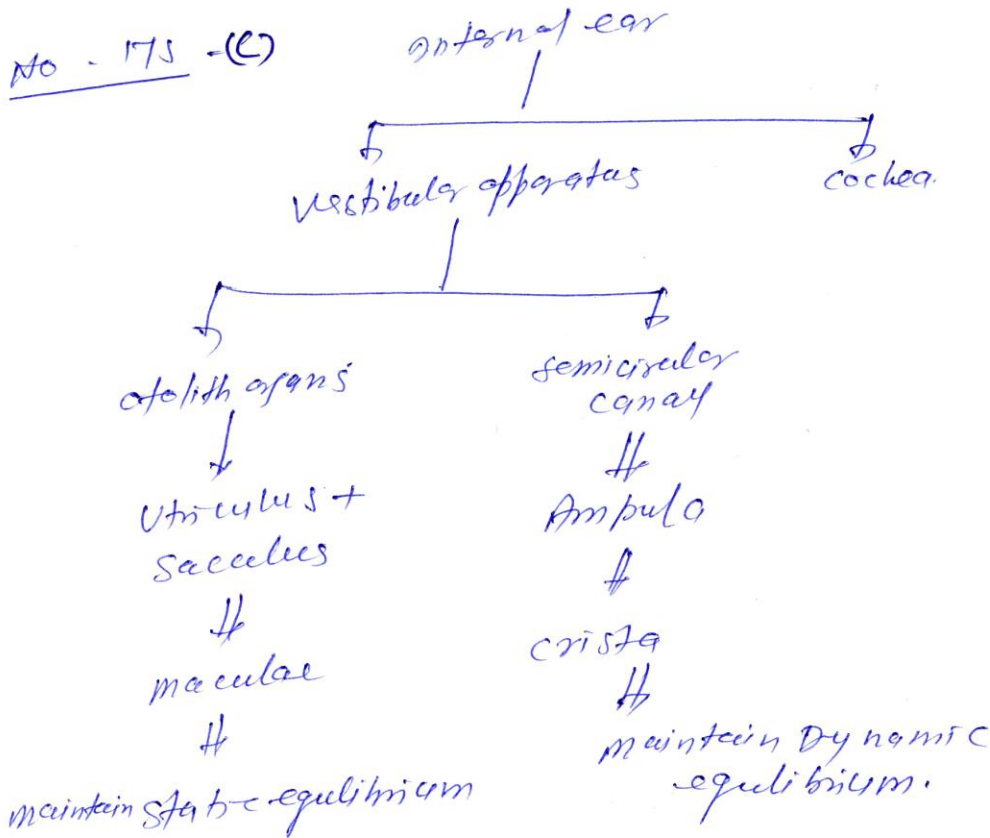 No - 175 - (C)
Internal ear
Vestibular apparatus
cochea.
otolith organs
semicirular
canal
Utriculus +
Sacculus
Ampula
maculae
crista
maintain static equlibrium
maintain Dynamic
equlibrium.